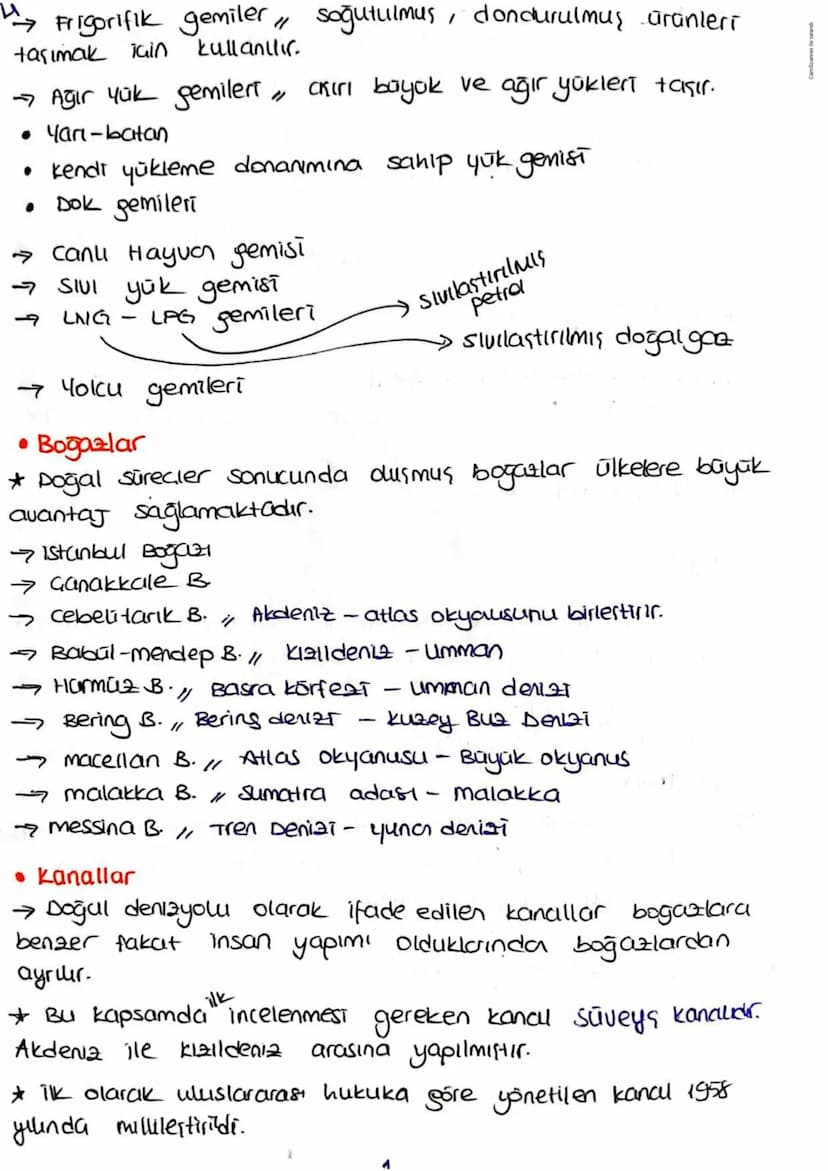 → Frigorifik gemiler // soğutulmuş, dondurulmuş ürünleri
taşımak için kullanılır.
→ Ağır yük gemileri // aşırı büyük ve ağır yükleri taşır.
• Yarı-batan
• Kendi yükleme donanımına sahip yük gemisi
• Dok gemileri
→ Canlı Hayvan gemisi
→ SIVI yük gemisi
→ LNG - LPG gemileri
→ sıvılaştırılmış
petrol
→ sıvılaştırılmış doğalgaz
→ Yolcu gemileri
• Boğazlar
* Doğal süreçler sonucunda oluşmuş boğazlar ülkelere büyük
avantaj sağlamaktadır.
→ İstanbul Boğazı
→ Çanakkale B
→ Cebelitarık B. // Akdeniz - atlas okyanusunu birleştirir.
→ Babül-mendep B. // Kızıldeniz - Umman
→ Hürmüz B. // Basra körfezi - umman denizi
→ Bering B. // Bering denizi - Kuzey Buz Denizi
→ macellan B. // Atlas okyanusu - Büyük okyanus
→ malakka B. // Sumatra adası - malakka
→ messina B. // Tren Denizi - yunan denizi
• Kanallar
→ Doğal denizyolu olarak ifade edilen kanallar bogazlara
benzer fakat insan yapımı olduklarından boğazlardan
ayrılır.
* Bu kapsamda ilk incelenmesi gereken kanal Süveyş kanalıdır.
Akdeniz ile Kızıldeniz arasına yapılmıştır.
* İlk olarak uluslararası hukuka göre yönetilen kanal 1958
yılında millileştirildi.
1
CamScanner ile tarandı